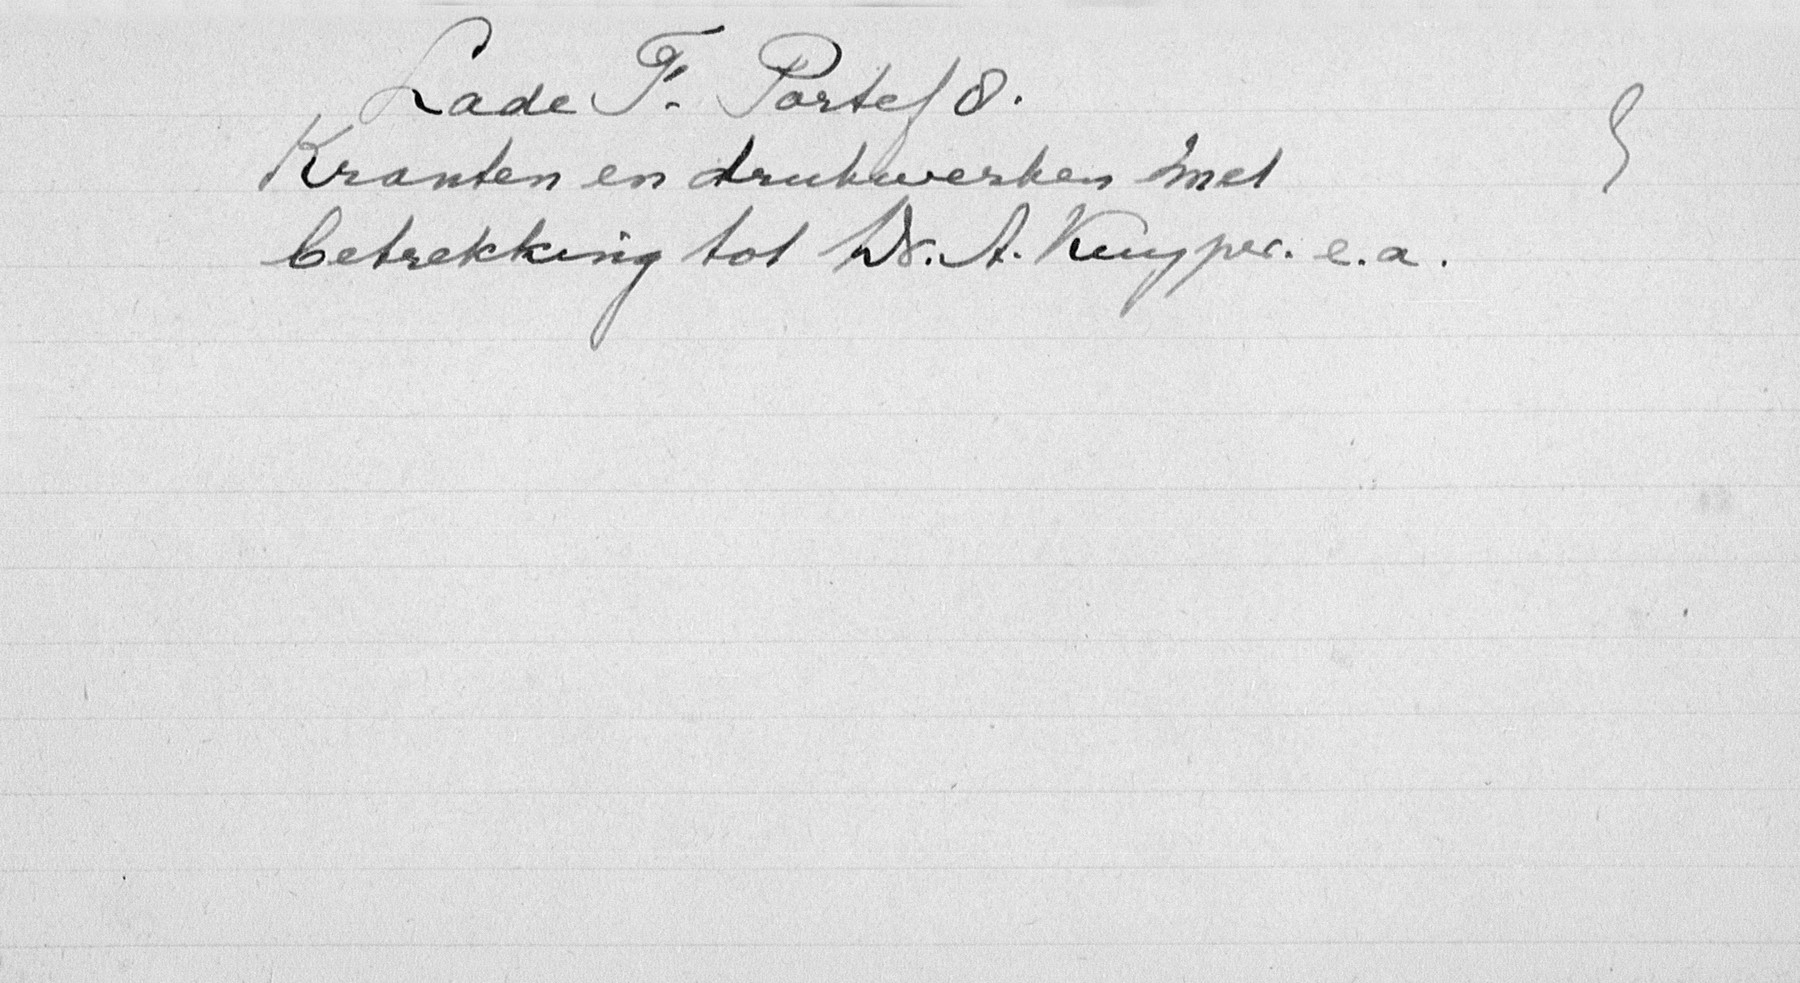 Lade F. Portef 8.
Kranten en drukwerken met
betrekking tot Dr. A. Kuyper. e.a.